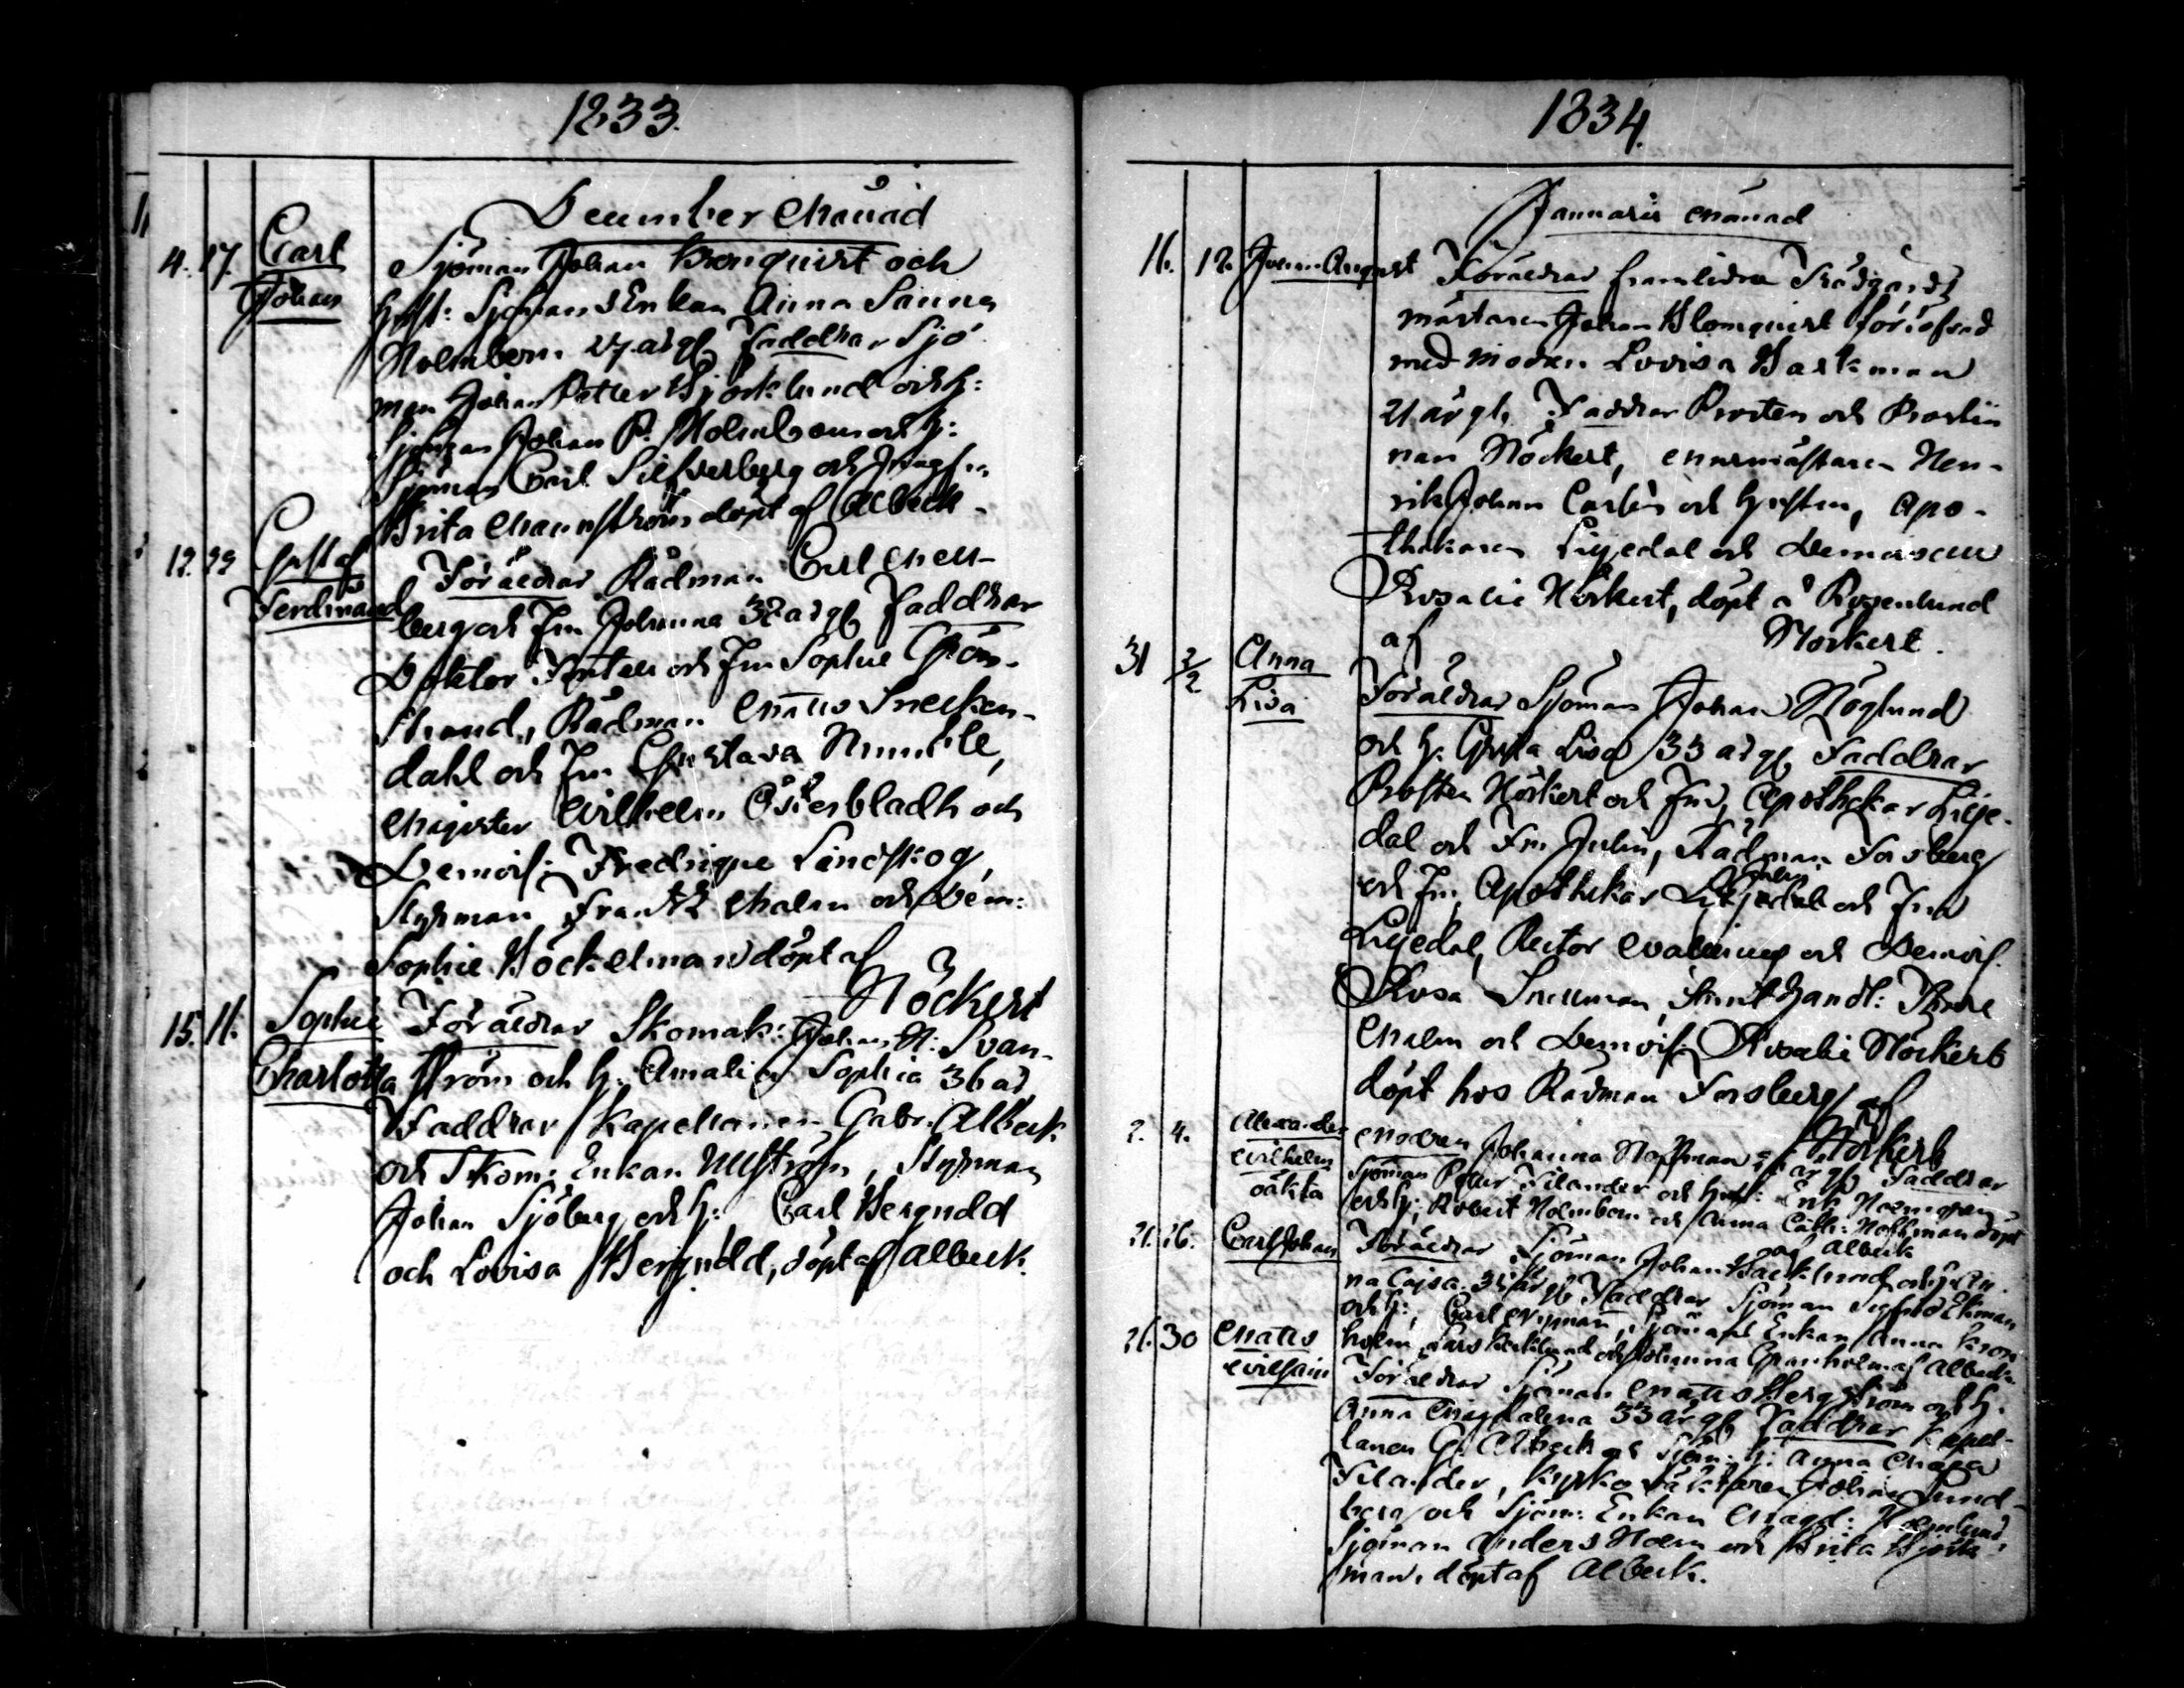 1833.
December Månad
4. 17. Carl Johan
Sjöman Johan Kronquist och
hust: Sjömans Enkan Anna Sanna
Holmbom 27 år gl. Faddrar Sjö
man Johan Petter Björklund och h:
Sjöman Johan P. Holmbom och h:
Sjöman Carl Silfverberg och Jungfru
Brita döpt af Albeck.
12. 29 Gustaf Ferdinand
Föräldrar Rådman Carl Mell-
berg och Fru Johanna 32 år gl. Faddrar
Doktor och Fru Sophie Grön-
strand, Rådman Matts Snecken-
dahl och Fru Gustava
Magister Wilhelm Österbladh och
Demois: Fredrique Lindskog,
Styrman Frantz Malm och Dem:
Sophie Böckelman döpt af
Höckert
15. 11. Sophie Charlotta
Föräldrar Skomak: Johan H: Svan-
ström och h: Amalia Sophia 36 år
Faddrar Kapellanen Gabr. Albeck
och Skom: Enkan Ulfström, Styrman
Johan Sjöberg och h: Carl Bergudd
och Lovisa Bergudd, döpt af Albeck.
1834.
Januarii Månad
11. 12. Johan August
Föräldrar framlidne Trädgårds
mästaren Johan Blomquist
med modern Lovisa Backman
21 år gl. Faddrar Prosten och Prostin
nan Höckert, Murmästaren Hen-
rik Johan Carlin och hustrun, Apo-
thekaren Liljedal och Demoiselle
Rosalie Höckert, döpt å Rosenlund
af Höckert.
31 2/2 Anna Lisa
Föräldrar Sjöman Johan Höglund
och h: Greta Lisa 33 år gl. Faddrar
Prosten Höckert och Fru, Apothekar Lilje-
dal och Fru Julin, Rådman Forsberg
och Fru, Apothekar Julin och Fru
Liljedal, Rector Wallenius och Demois.
Rosa Snellman, Handl: Thure
Malm och Demois: Rosalie Höckert
döpt hos Rådman Forsberg af
Höckert
2. 4. Alexander Wilhelm oäkta
Modren Johanna Hoffman år gl. Faddrar
Sjöman Petter Filander och hust: Enk Holmgren
och h; Robert Holmbom och Anna Cath: Hoffman döpt
af Albeck
21. 26. Carl Johan
Föräldrar Sjöman Johan Backlund och h: An-
na Cajsa 35 år gl. Faddrar Sjöman Sigfrid Ekman
och h:, Carl Nyman, Sjömans Enkan Anna Kron
holm, Lars och Johanna Granholm af Albeck
26. 30 Matts Wilhelm
Föräldrar Sjöman Matts Bergström och h.
Anna Magdalena 33 år gl. Faddrar Kapel-
lanen G. Albeck och Sjöm: h: Anna Maria
Filander, Kyrko Johan Sund-
berg och Sjöm: Enkan Magd:
Sjöman Anders Holm och Brita Björk-
man, döpt af Albeck.